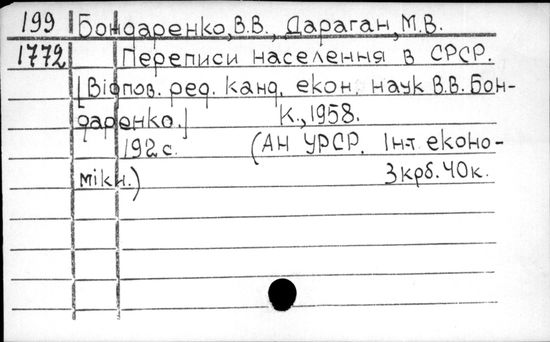 199 Бондаренко, В.В., Дараган, М.В.
1772 Переписи населення в СРСР.
[Відпов. ред. канд. екон. наук В.В. Бон-
даренко.] К., 1958.
192 с. (АН УРСР. Інт. еконо-
міки.) 3 крб. 40 к.